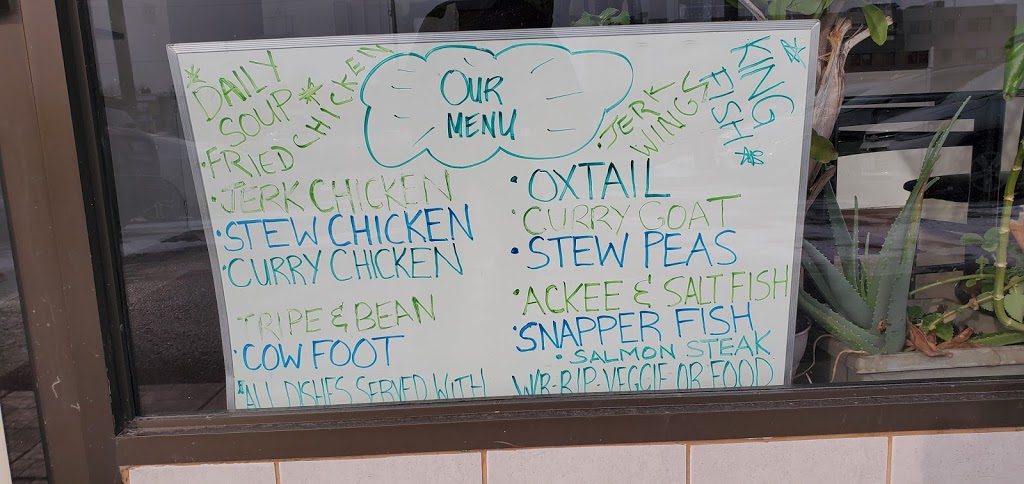 OUR
MENU
*DAILY
SOUP*
•FRIED CHICKEN
•JERK CHICKEN
•STEW CHICKEN
•CURRY CHICKEN
TRIPE & BEAN
•COW FOOT
•JERK
WINGS
KING
FISH
•OXTAIL
•CURRY GOAT
•STEW PEAS
•ACKEE & SALT FISH
•SNAPPER FISH
•SALMON STEAK
*ALL DISHES SERVED WITH W/R-R/P-VEGGIE OR FOOD